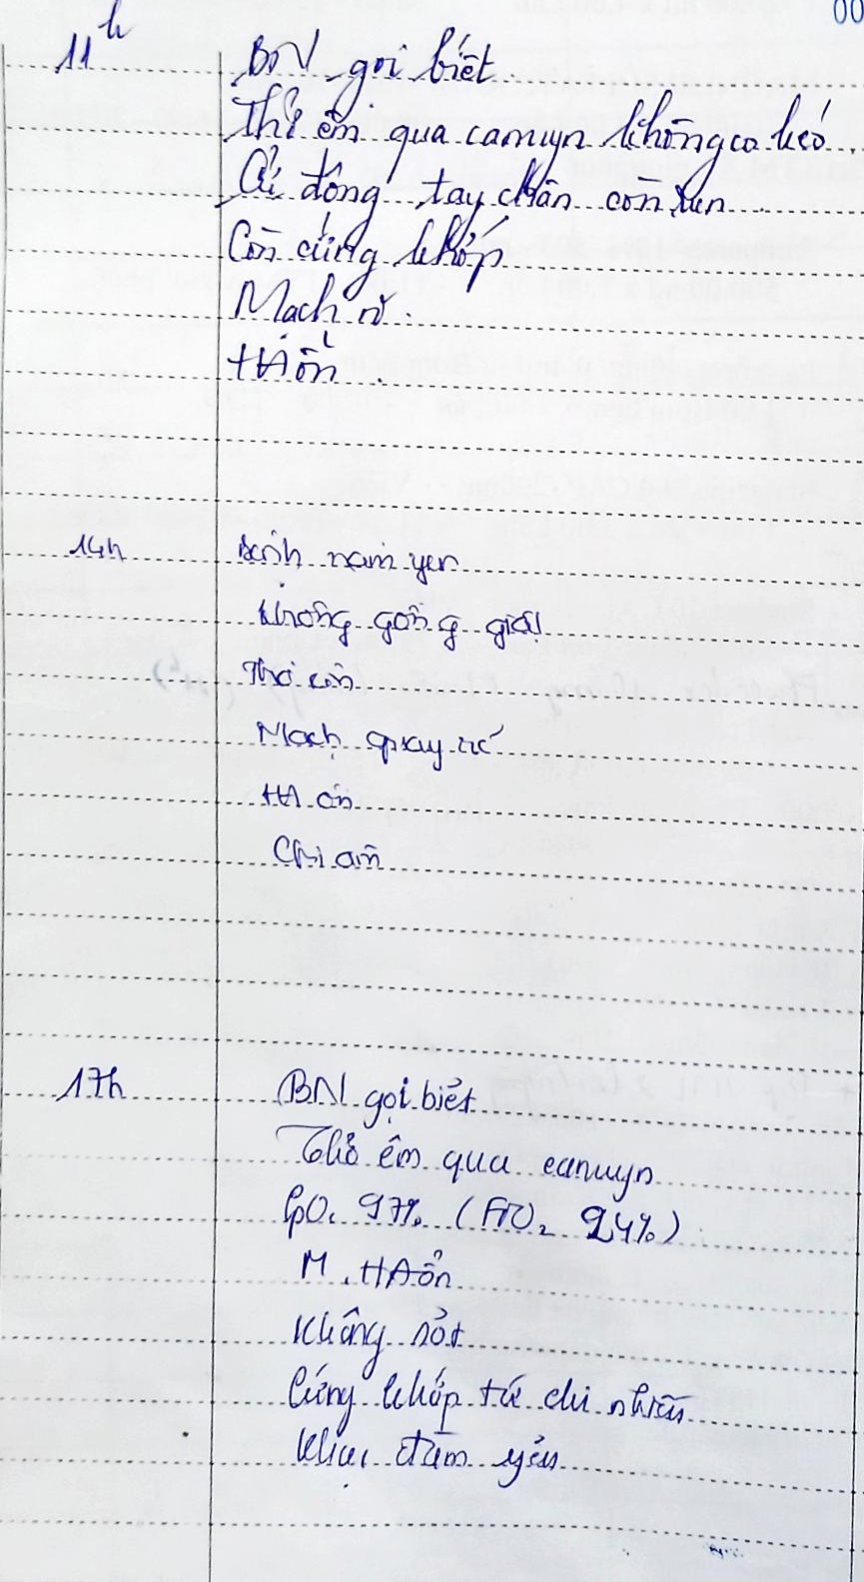 00
11h
BN gọi biết
Thở êm qua canuyn không co kéo
Cử động tay chân còn run
Còn cứng khớp
Mạch rõ.
HA ổn.
14h
Bệnh nằm yên
Không gồng giật
Thở êm
Mạch quay rõ
HA ổn
Chi ấm
17h
BN gọi biết
Thở êm qua canuyn
SpO2 97% (FiO2 24%)
M, HA ổn
Không sốt
Cứng khớp tứ chi nhiều
Khạc đàm yếu